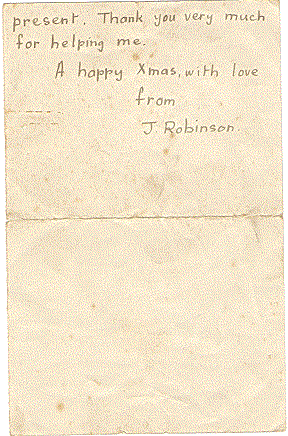 present. Thank you very much
for helping me.
A happy Xmas, with love
from
J. Robinson.